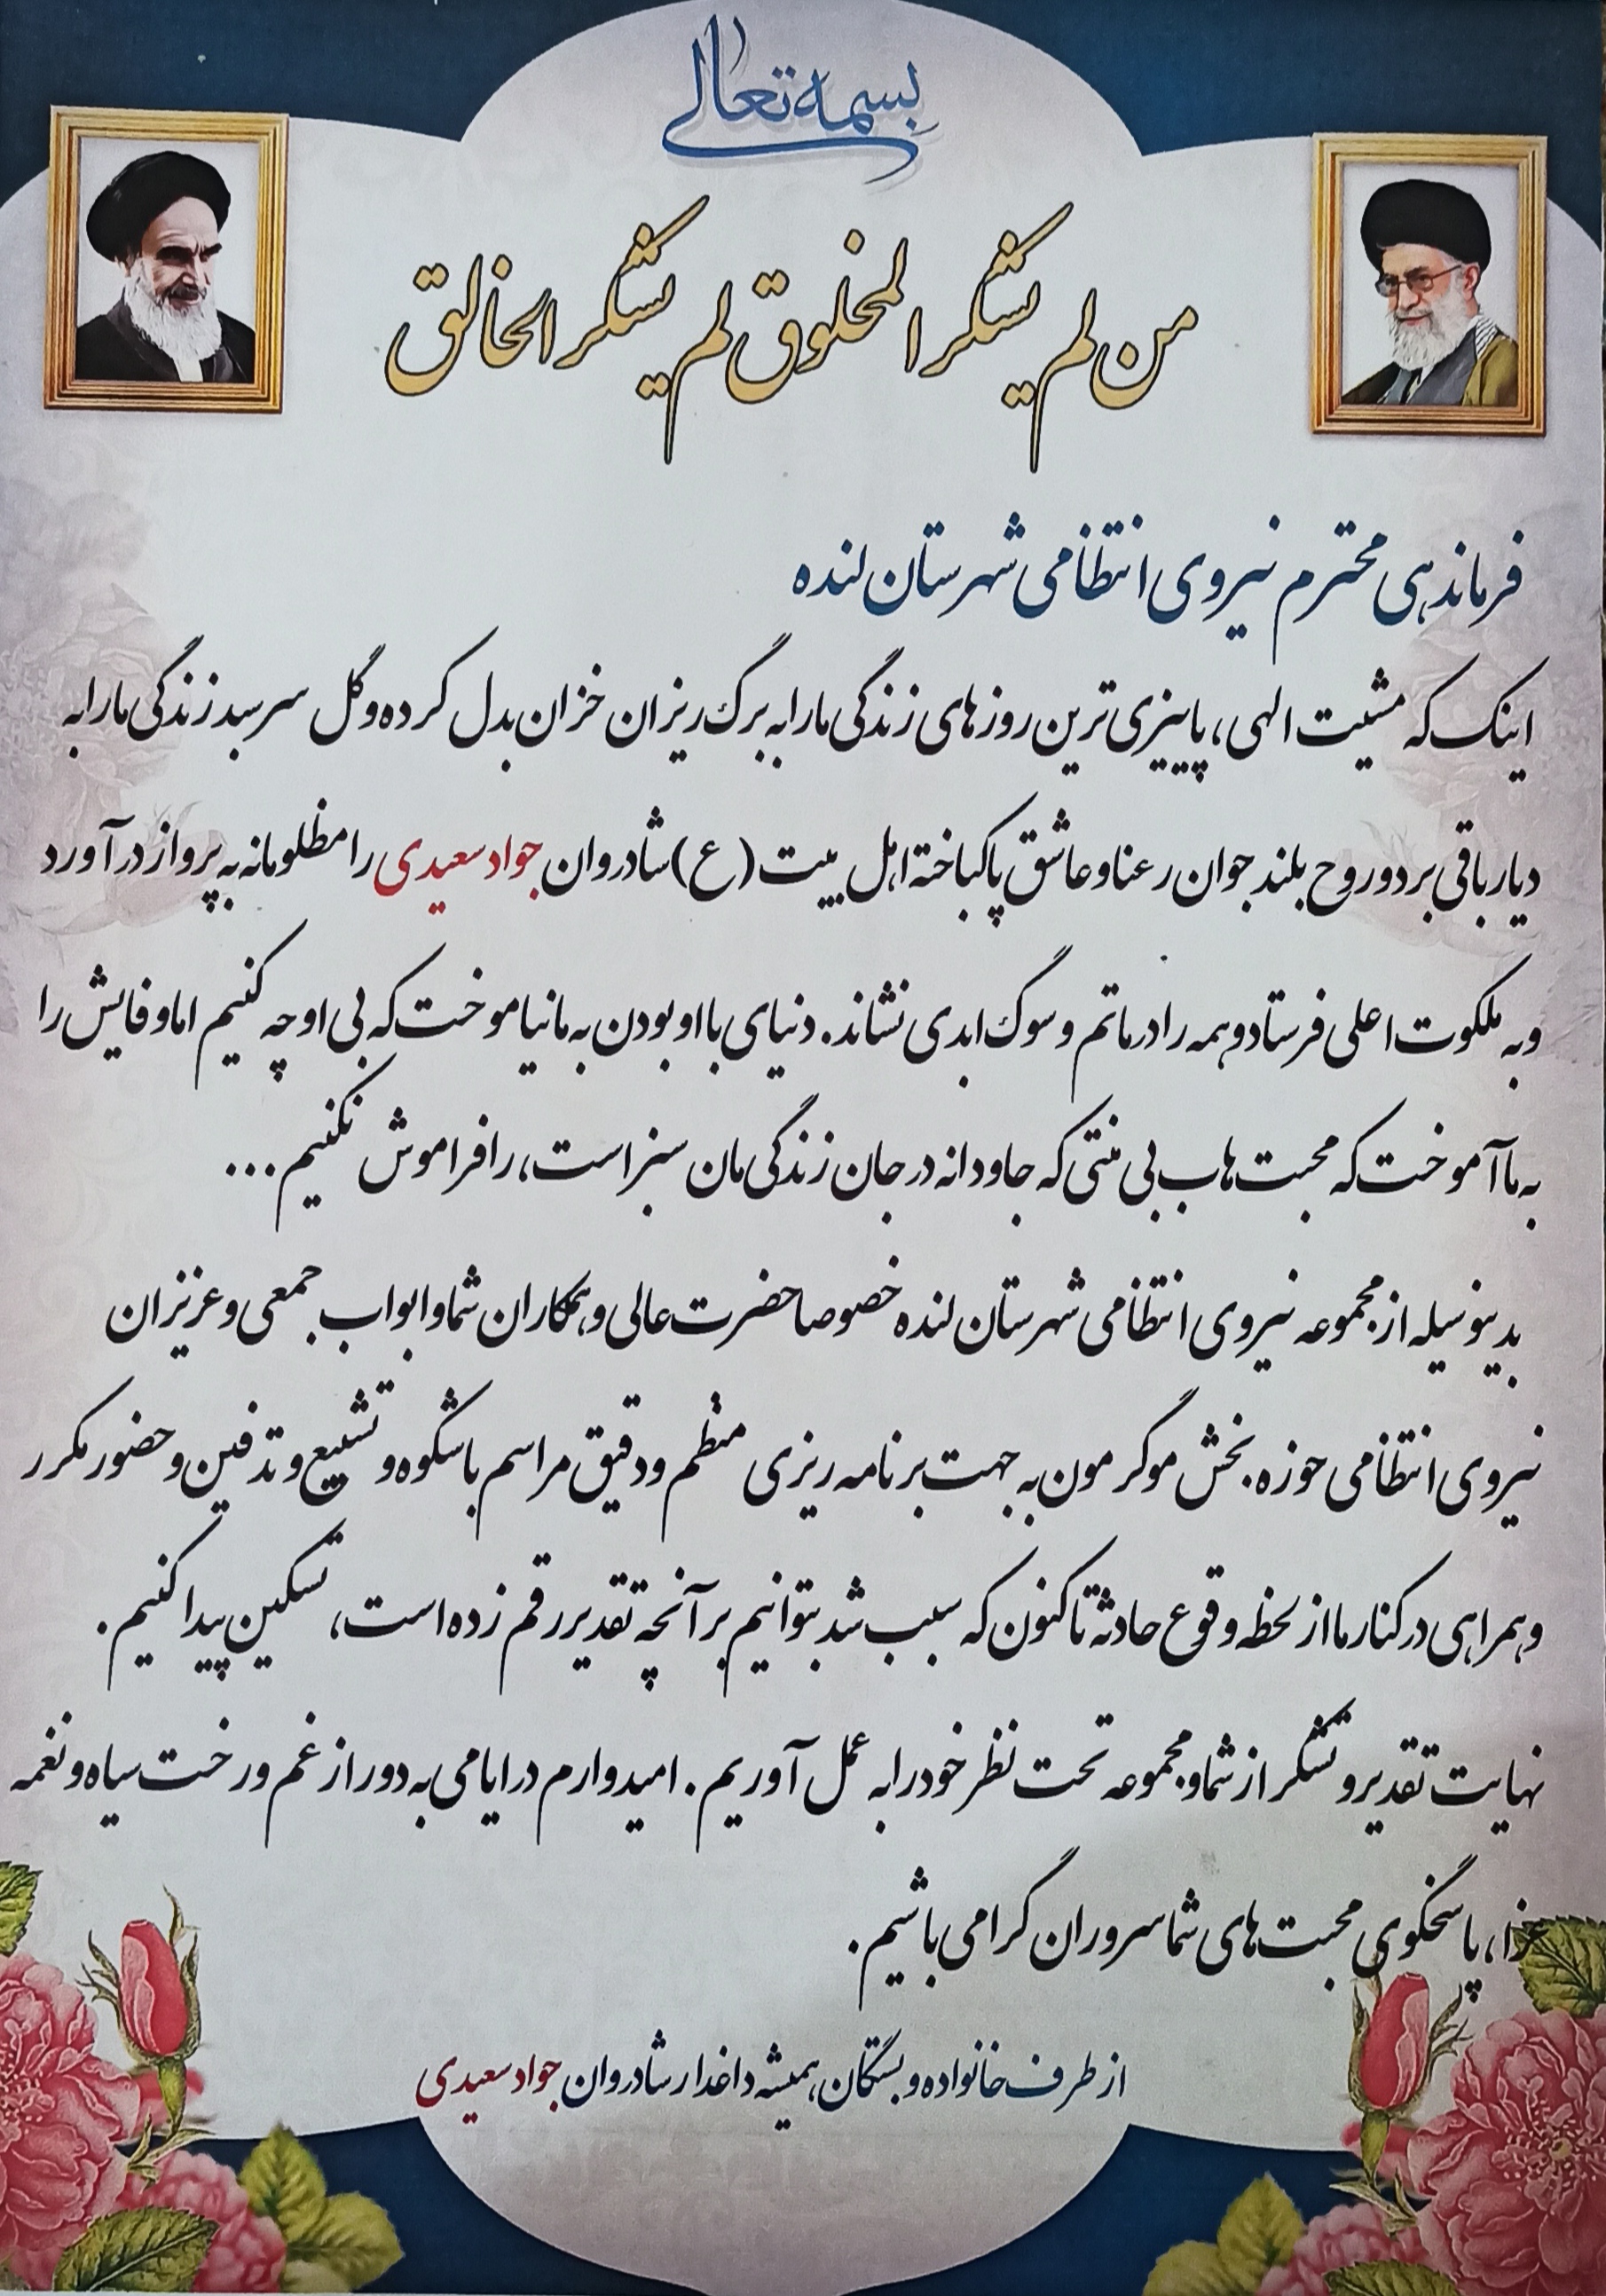 بسمه تعالی
من لم یشکر المخلوق لم یشکر الخالق
فرماندهی محترم نیروی انتظامی شهرستان لنده
اینک که مشیت الهی، پاییزی ترین روزهای زندگی ما را به برگ ریزان خزان بدل کرده و گل سرسبد زندگی ما را به
دیار باقی برد و روح بلند جوان رعنا و عاشق پاکباخته اهل بیت (ع) شادروان جواد سعیدی را مظلومانه به پرواز درآورد
و به ملکوت اعلی فرستاد و همه را در ماتم و سوگ ابدی نشاند. دنیای با او بودن به ما نیاموخت که بی او چه کنیم اما وفایش را
به ما آموخت که محبت هاب بی منتی که جاودانه در جان زندگی مان سبز است، را فراموش نکنیم...
بدینوسیله از مجموعه نیروی انتظامی شهرستان لنده خصوصا حضرت عالی و همکاران شما و ابواب جمعی و عزیزان
نیروی انتظامی حوزه بخش موگرمون به جهت برنامه ریزی منظم و دقیق مراسم با شکوه و تشییع و تدفین و حضور مکرر
و همراهی در کنار ما از لحظه وقوع حادثه تا کنون که سبب شد بتوانیم بر آنچه تقدیر رقم زده است، تسکین پیدا کنیم.
نهایت تقدیر و تشکر از شما و مجموعه تحت نظر خود را به عمل آوریم. امیدوارم در ایامی به دور از غم و رخت سیاه و نغمه
عزا، پاسخگوی محبت های شما سروران گرامی باشیم.
از طرف خانواده و بستگان همیشه داغدار شادروان جواد سعیدی